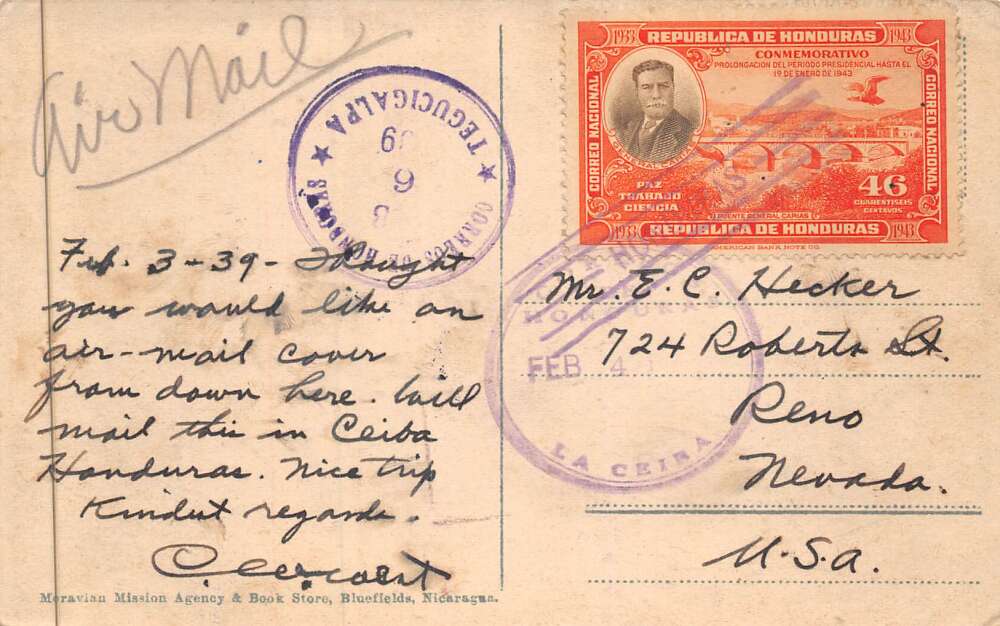 Air Mail
★ TEGUCIGALPA ★
CORREOS DE HONDURAS
9
1933 REPUBLICA DE HONDURAS 1943
CONMEMORATIVO
PROLONGACION DEL PERIODO PRESIDENCIAL HASTA EL
1º DE ENERO DE 1943
CORREO NACIONAL
CORREO NACIONAL
GENERAL CARIAS
PAZ
TRABAJO
CIENCIA
46
CUARENTISEIS
CENTAVOS
PUENTE GENERAL CARIAS
1933 REPUBLICA DE HONDURAS 1943
AMERICAN BANK NOTE CO.
HONDURAS
FEB 4
LA CEIBA
Feb. 3-39- Thought
you would like an
air-mail cover
from down here. Will
mail this in Ceiba
Honduras. Nice trip
Kindest regards.
Mr. E. C. Hecker
724 Roberts St.
Reno
Nevada.
U.S.A.
Moravian Mission Agency & Book Store, Bluefields, Nicaragua.